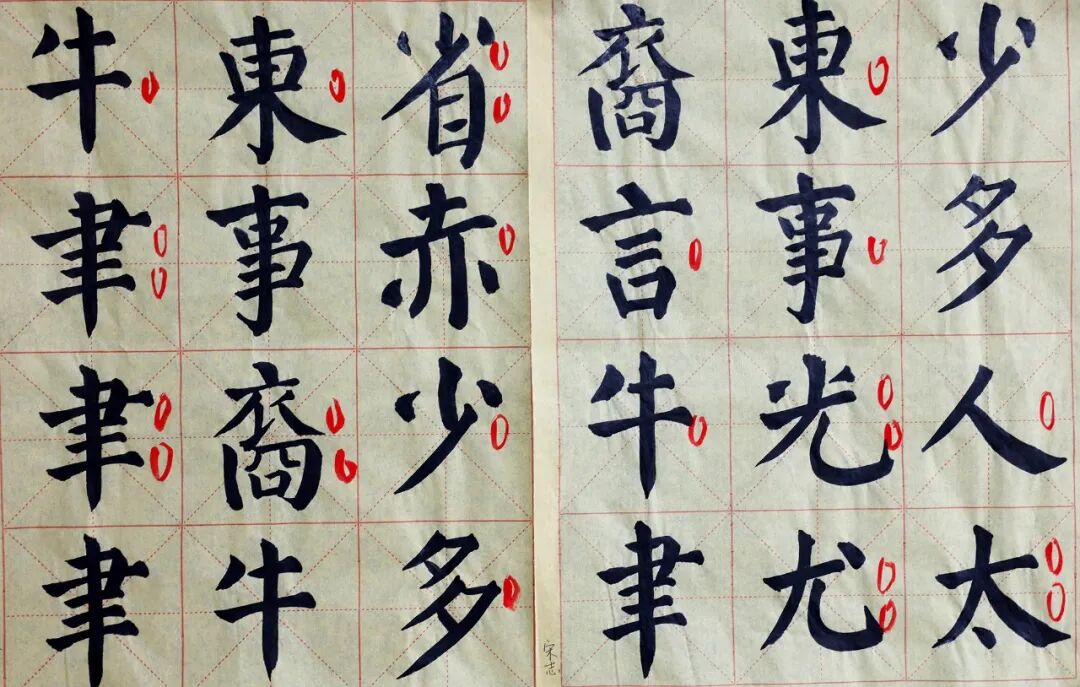 少多人太
東事光尤
裔言牛聿
省赤少多
東事裔牛
牛聿聿聿
宋志